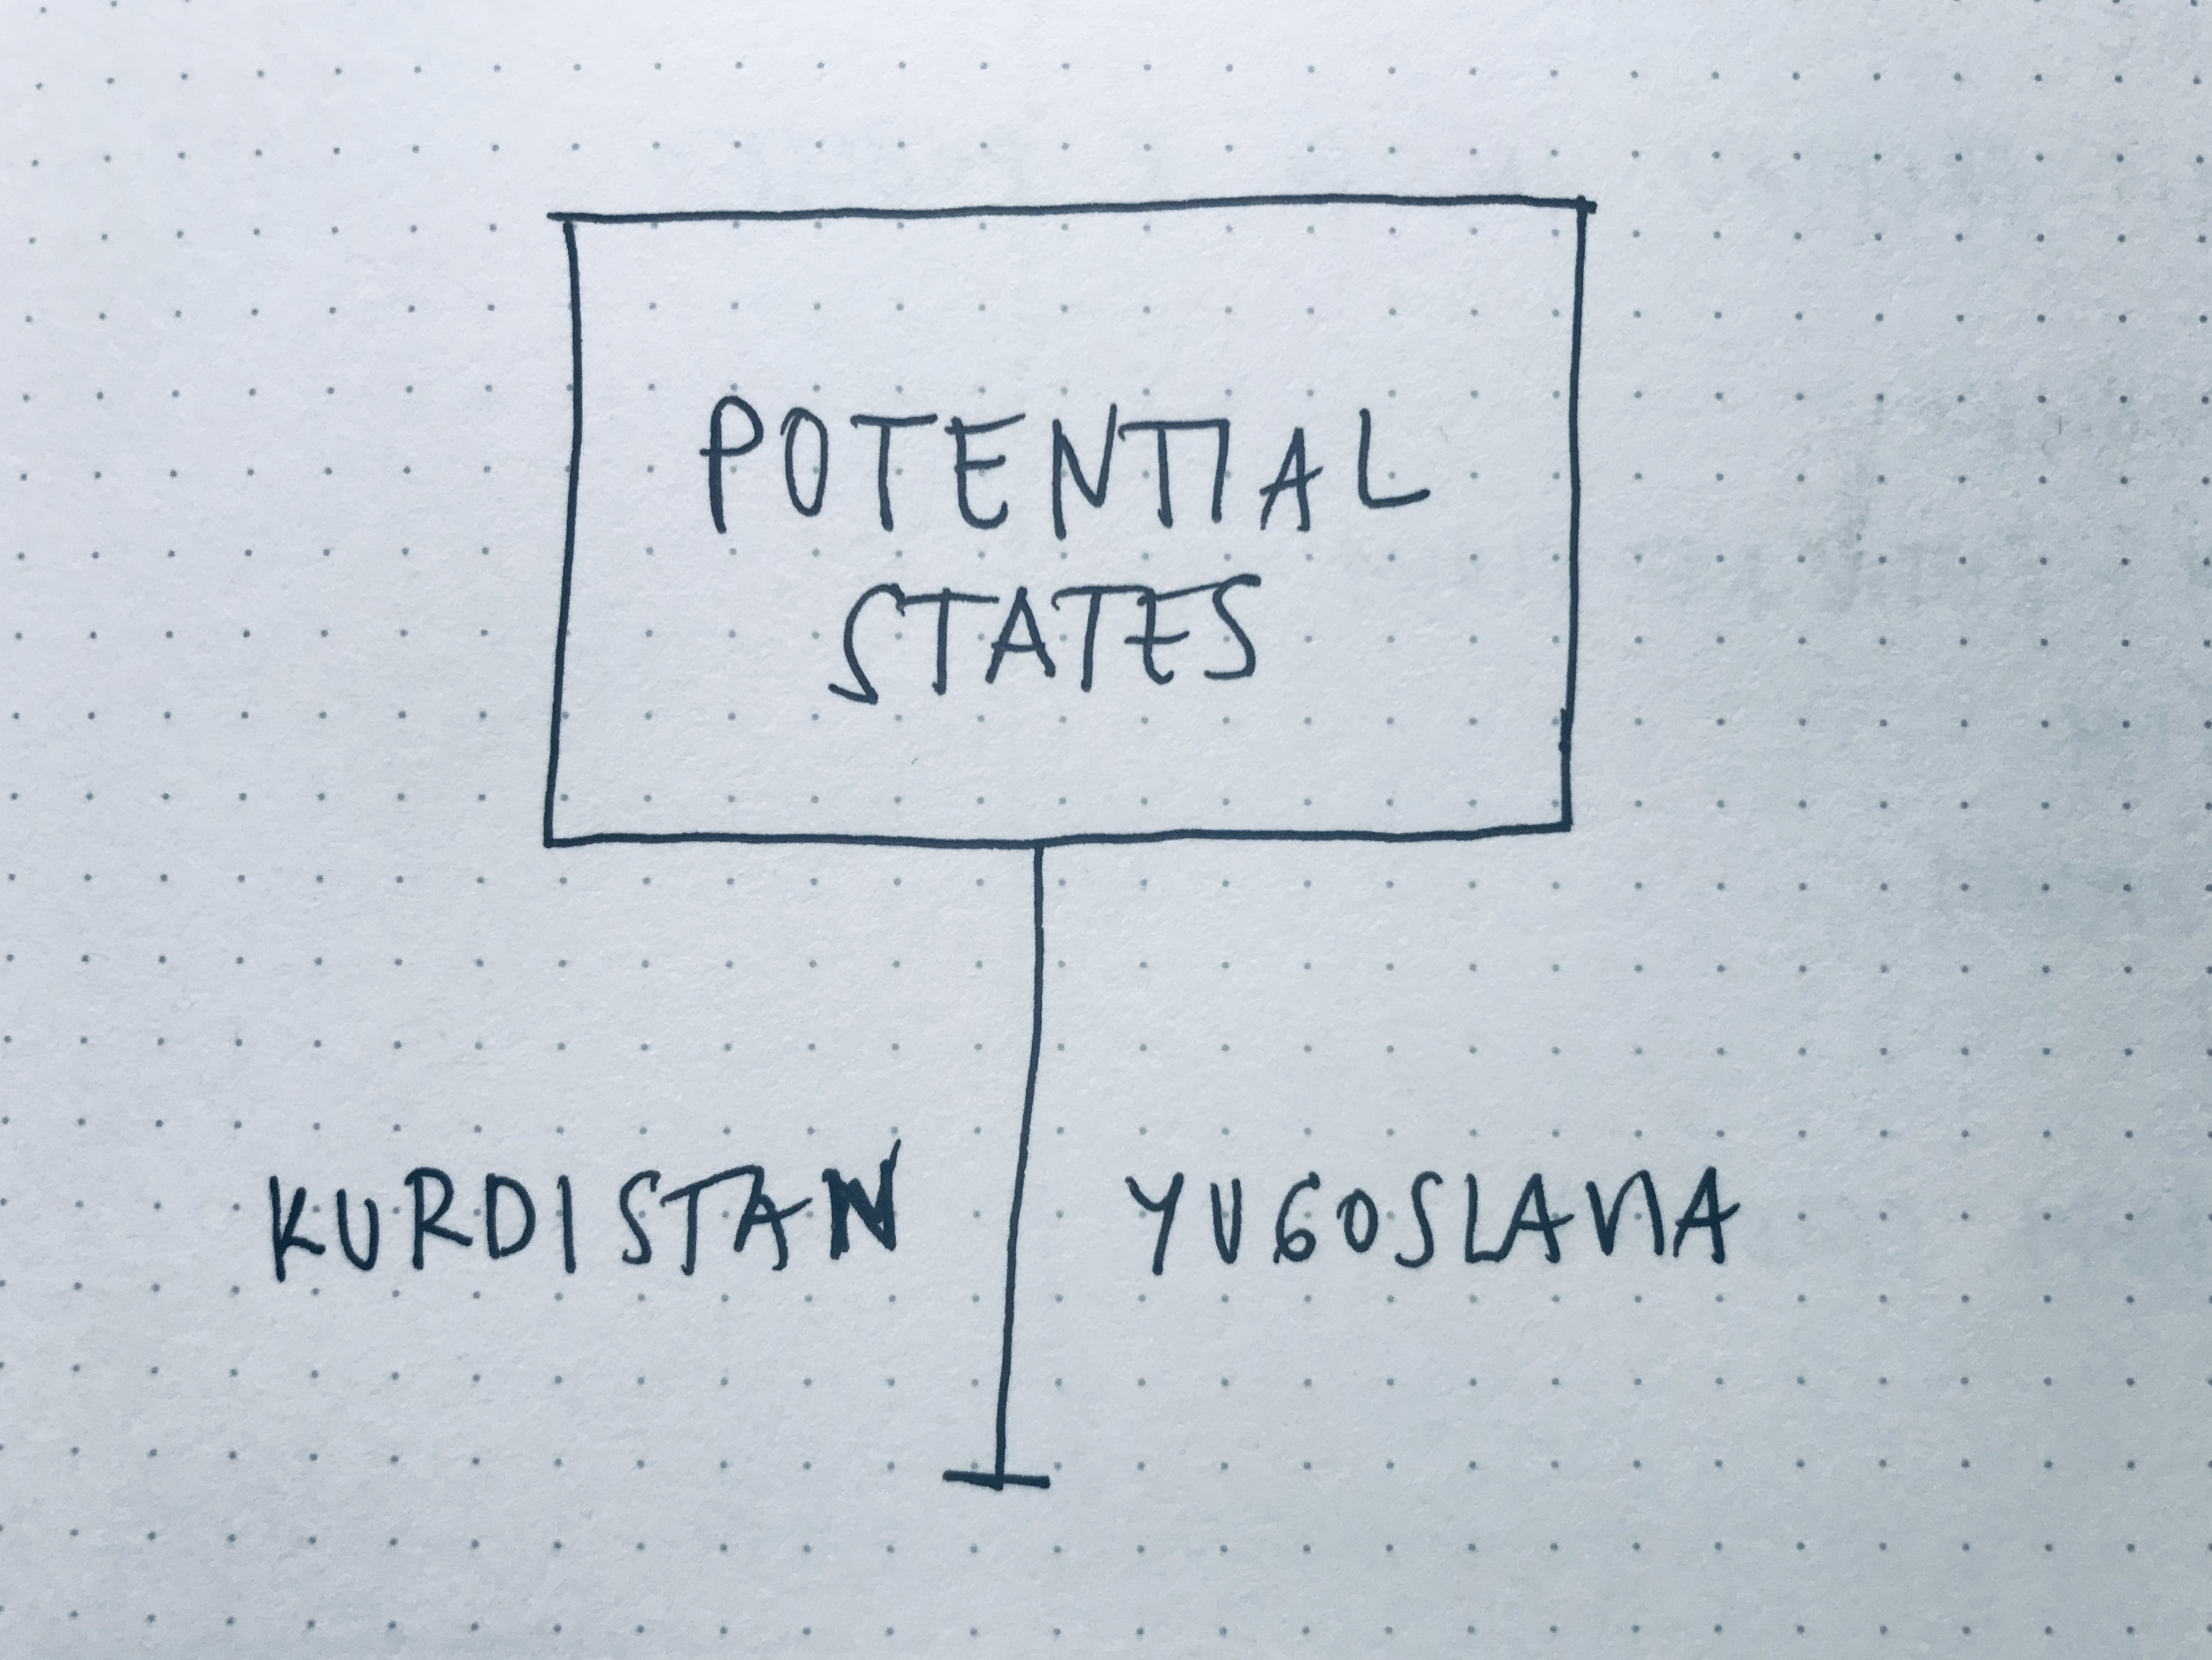 POTENTIAL
STATES
KURDISTAN
YUGOSLAVIA